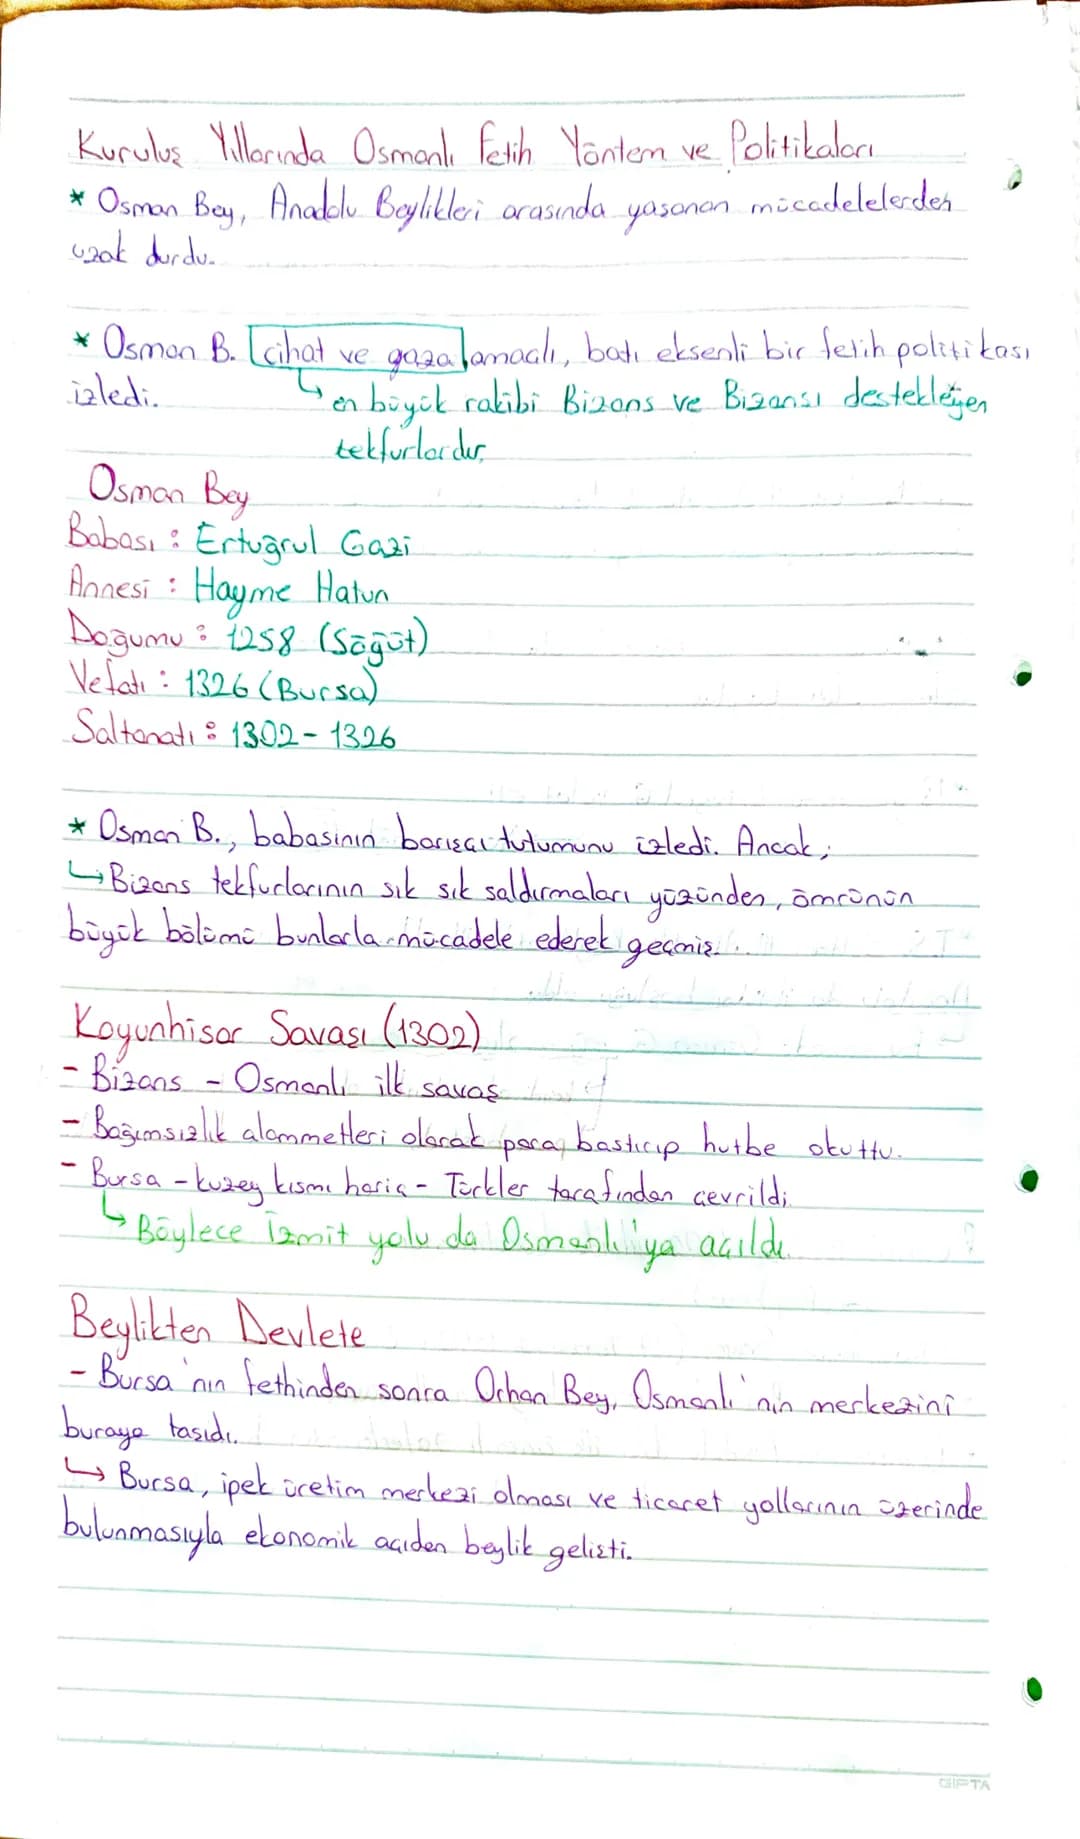 Kuruluş Yıllarında Osmanlı Fetih Yöntem ve Politikaları
* Osman Bey, Anadolu Beylikleri arasında yaşanan mücadelelerden
uzak durdu.
* Osman B. cihat ve gaza amaçlı, batı eksenli bir fetih politikası
izledi.
↳ en büyük rakibi Bizans ve Bizansı destekleyen
tekfurlardır.
Osman Bey
Babası : Ertuğrul Gazi
Annesi : Hayme Hatun
Doğumu : 1258 (Söğüt)
Vefatı : 1326 (Bursa)
Saltanatı : 1302 - 1326
* Osman B., babasının barışçı tutumunu izledi. Ancak;
↳ Bizans tekfurlarının sık sık saldırmaları yüzünden, ömrünün
büyük bölümü bunlarla mücadele ederek geçmiş.
Koyunhisar Savaşı (1302)
- Bizans - Osmanlı ilk savaş
- Bağımsızlık alammetleri olarak para bastırıp hutbe okuttu.
- Bursa - kuzey kısmı hariç - Türkler tarafından çevrildi
↳ Böylece İzmit yolu da Osmanlı'ya açıldı
Beylikten Devlete
- Bursa'nın fethinden sonra Orhan Bey, Osmanlı'nın merkezini
buraya taşıdı.
↳ Bursa, ipek üretim merkezi olması ve ticaret yollarının üzerinde
bulunmasıyla ekonomik açıdan beylik gelişti.
GIPTA